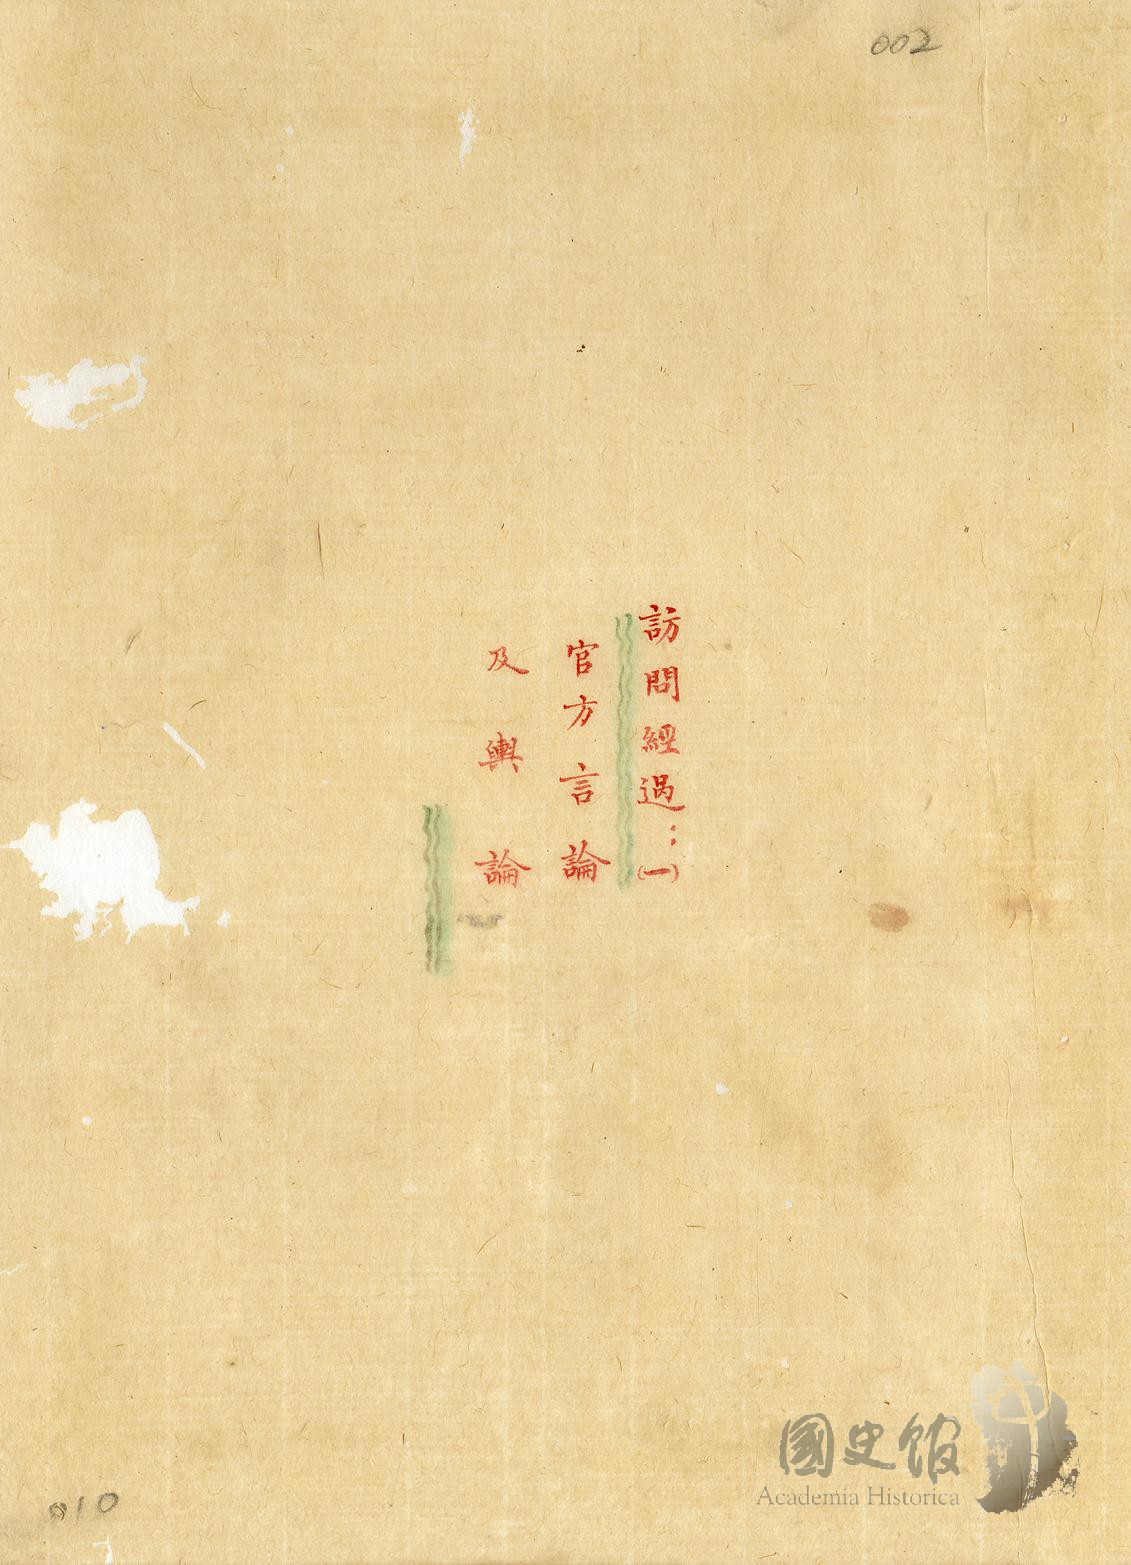 002
訪問經過：㈠
官方言論
及輿論
010
國史館
Academia Historica